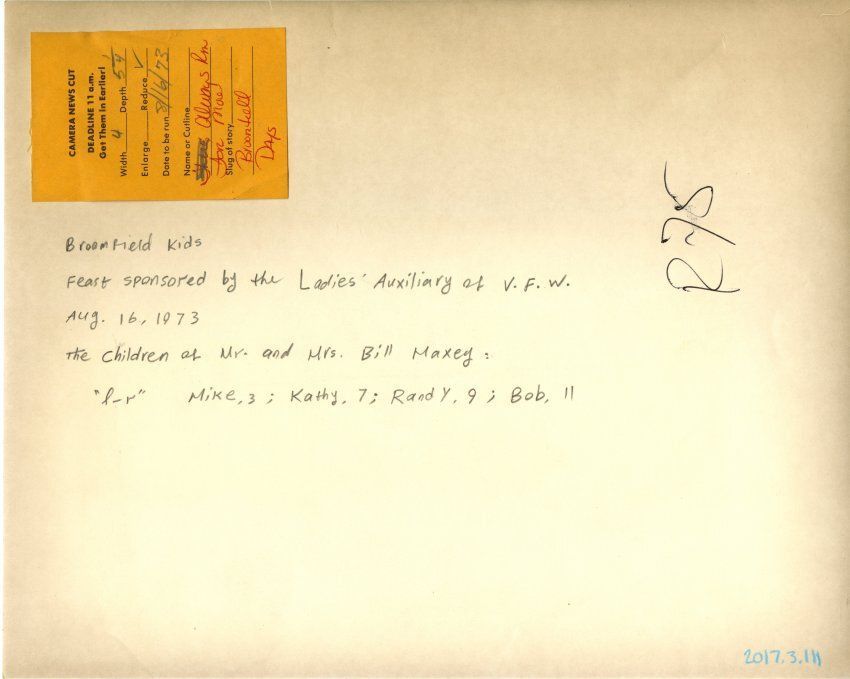 CAMERA NEWS CUT
DEADLINE 11 a.m.
Get Them In Earlier!
Width 4 Depth
Enlarge Reduce ✓
Date to be run 8/16/73
Name or Cutline
Always Rm
For More
Slug of story
Broomfield
Days
Broomfield Kids
Feast sponsored by the Ladies' Auxiliary of V.F.W.
Aug. 16, 1973
The children of Mr. and Mrs. Bill Maxey:
"l-r" Mike, 3; Kathy, 7; Randy, 9; Bob, 11
2017.3.111